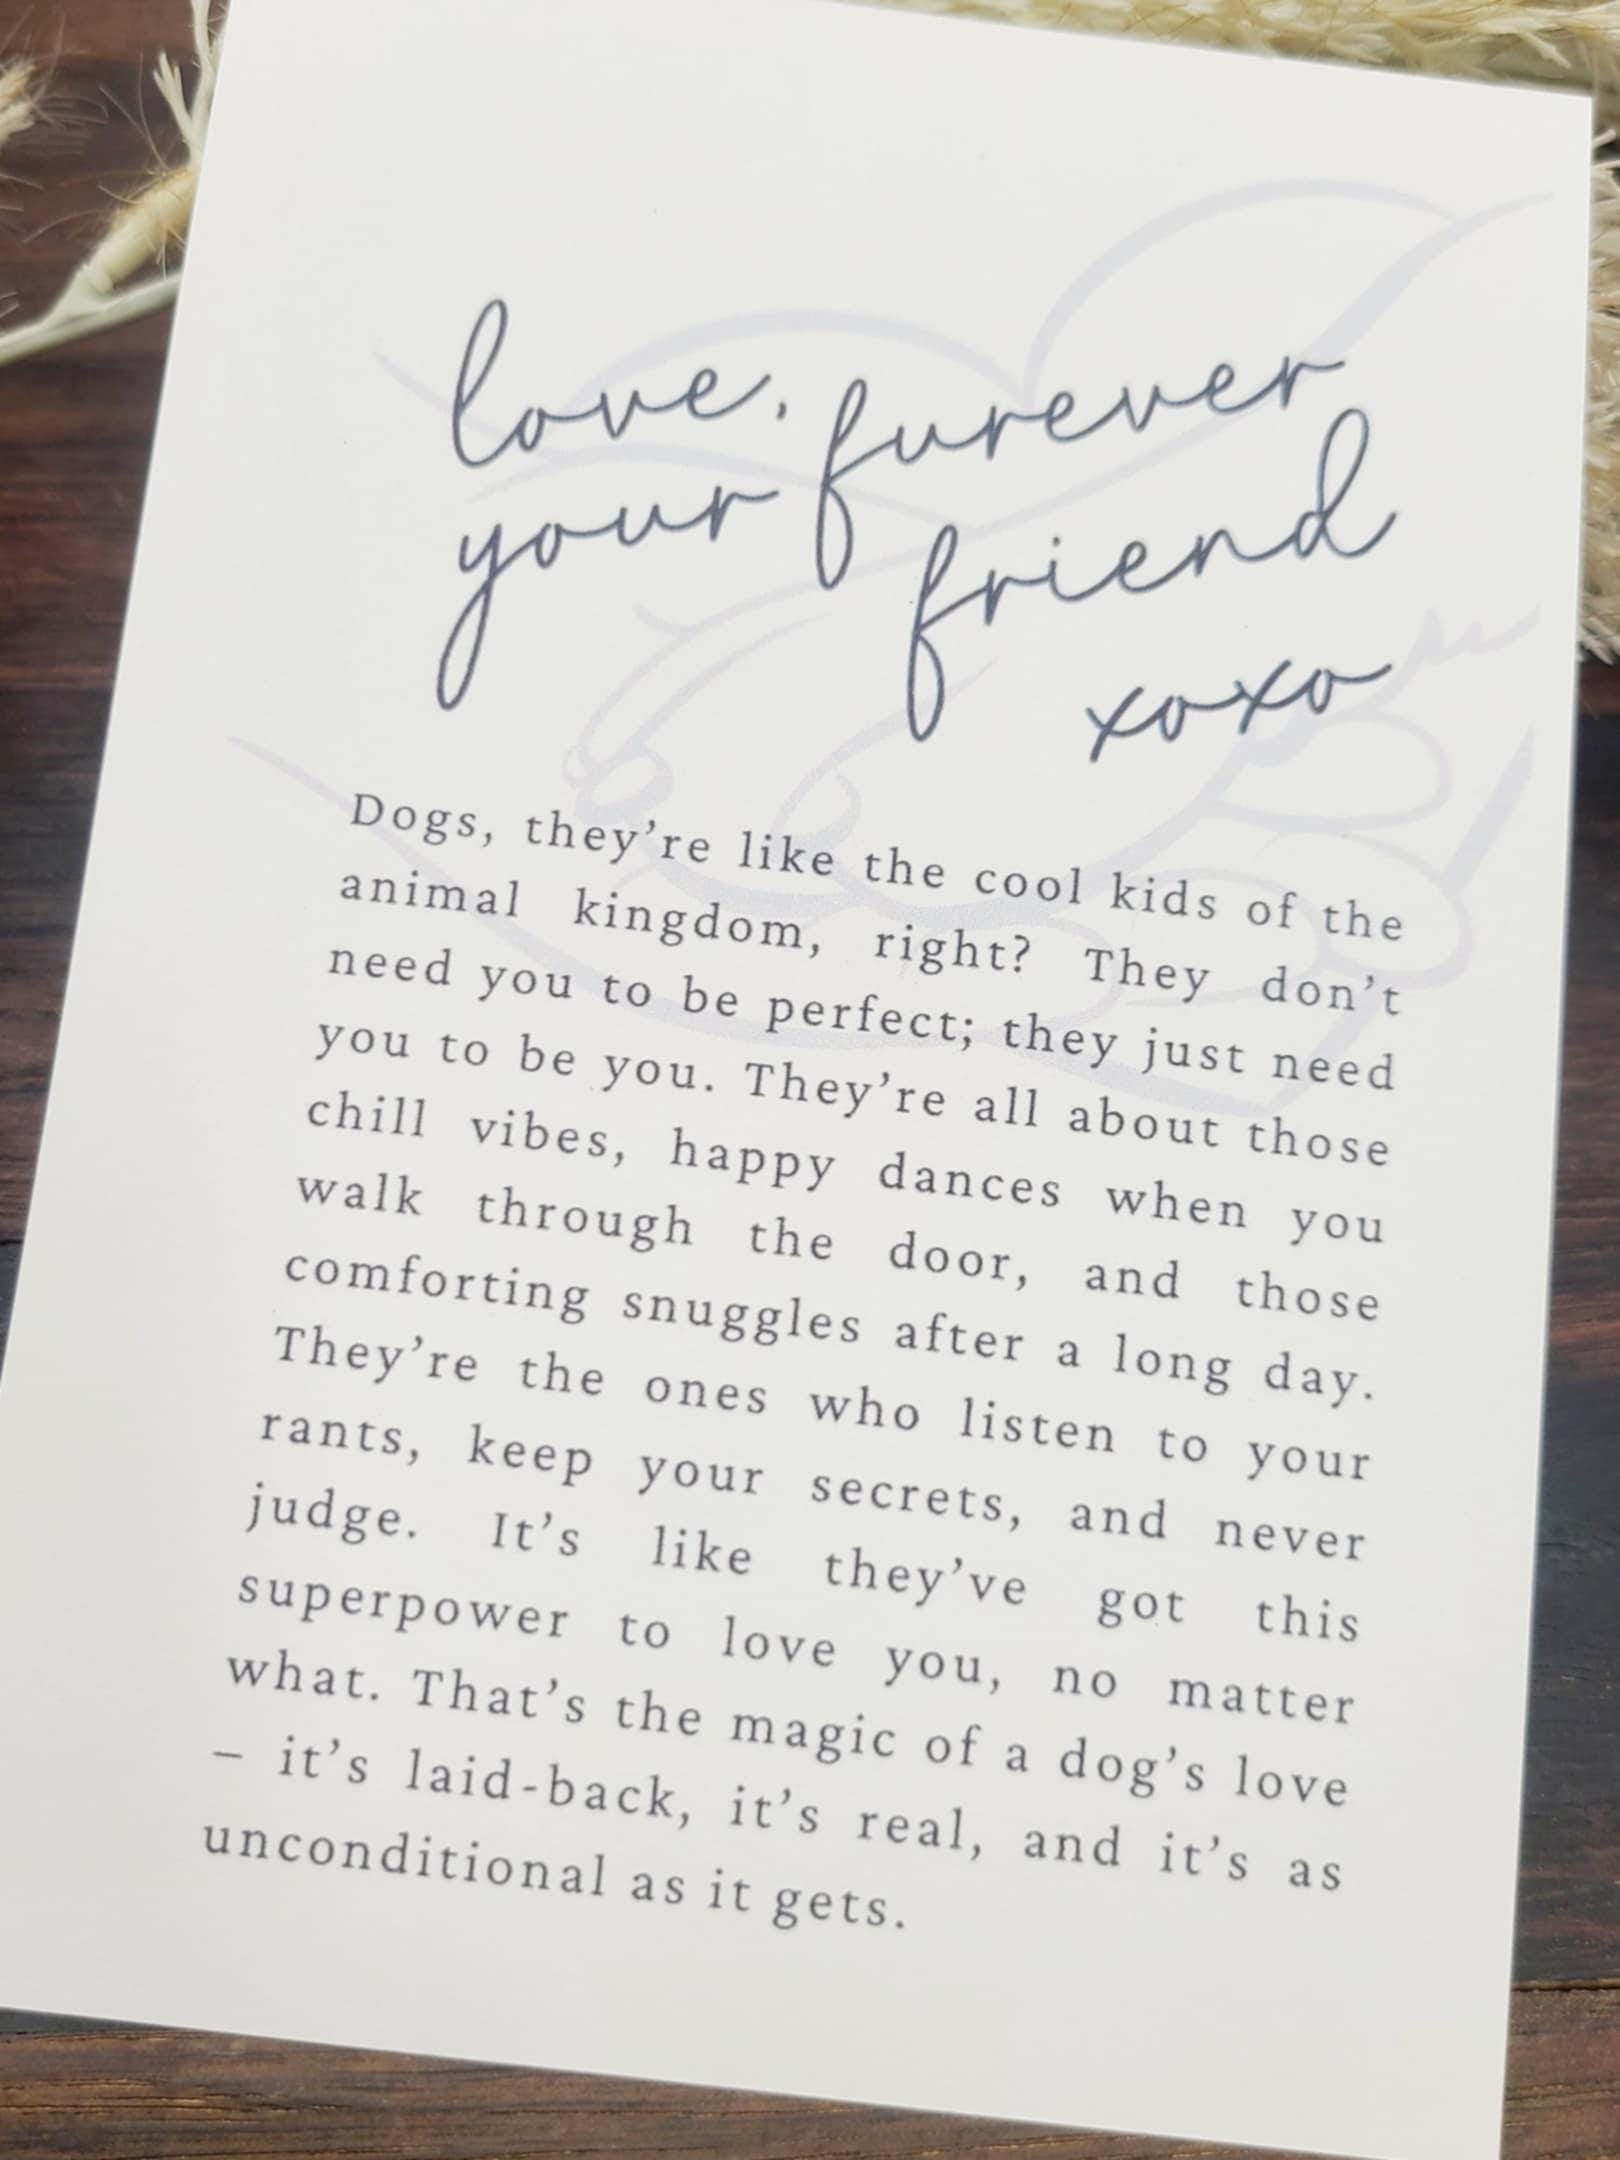 love, furever
your friend
xoxo
Dogs, they’re like the cool kids of the
animal kingdom, right? They don’t
need you to be perfect; they just need
you to be you. They’re all about those
chill vibes, happy dances when you
walk through the door, and those
comforting snuggles after a long day.
They’re the ones who listen to your
rants, keep your secrets, and never
judge. It’s like they’ve got this
superpower to love you, no matter
what. That’s the magic of a dog’s love
– it’s laid-back, it’s real, and it’s as
unconditional as it gets.